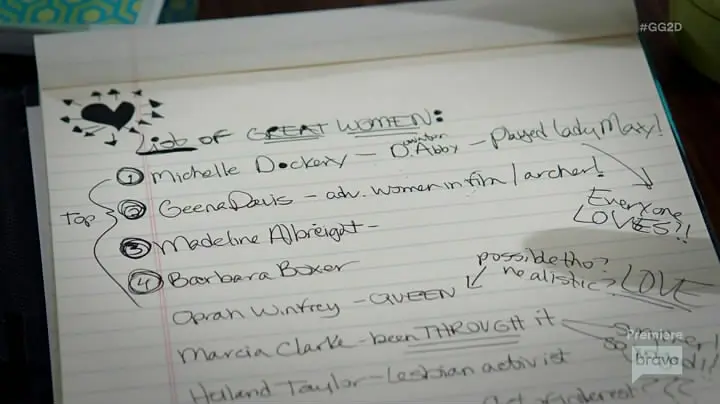 #GG2D
List OF GREAT WOMEN:
① Michelle Dockery – D. Abby – Played lady Mary!
Downton
Top
② Geena Davis – adv. women in film / archer!
Everyone
LOVES?!
③ Madeline Albreight –
④ Barbara Boxer
possible tho?
realistic? LOVE
Oprah Winfrey – QUEEN
Marcia Clarke – been THROUGH it
Holland Taylor – Lesbian activist
Premiere
bravo